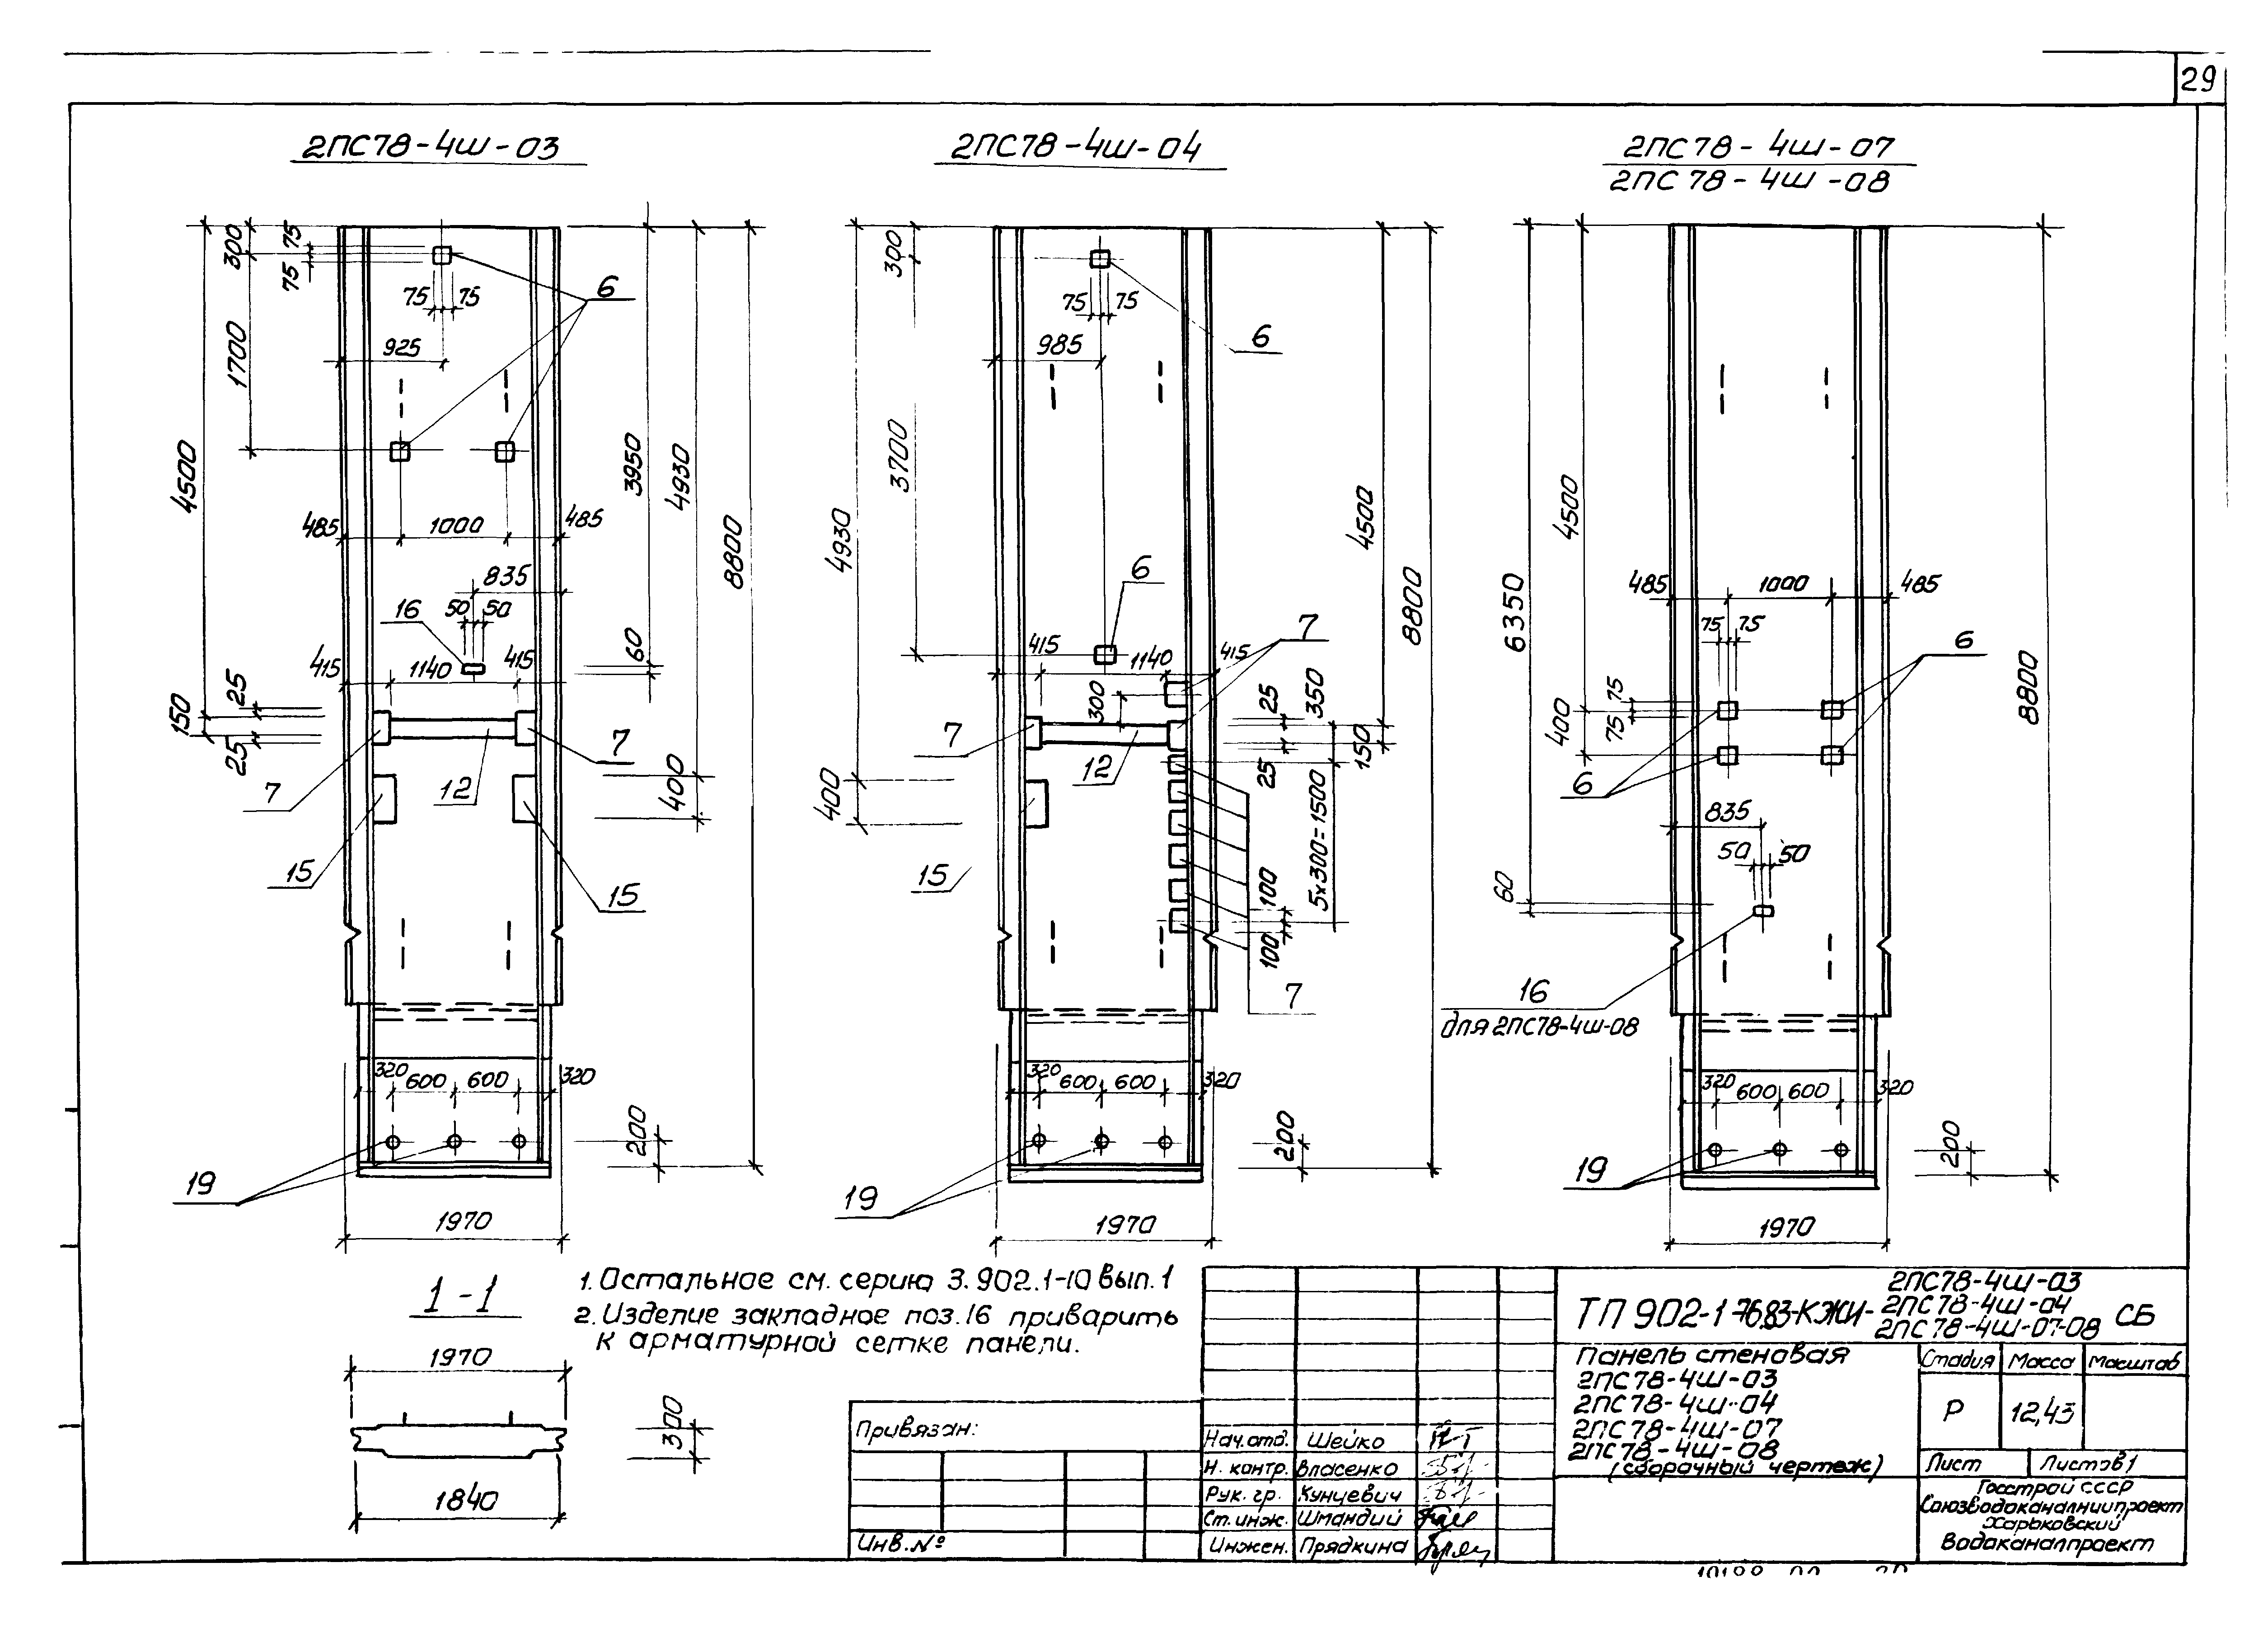 29
2ПС78-4Ш-03
300
75
75
75
75
6
925
1700
4500
3950
4930
8800
485
1000
485
835
16
50
50
60
415
1140
415
25
150
25
7
12
7
400
15
15
320
600
600
320
200
19
1970
2ПС78-4Ш-04
300
75
75
6
985
3700
4930
4500
8800
6
7
415
1140
415
300
25
350
7
12
25
150
400
15
5х300=1500
100
100
7
320
600
600
320
200
19
1970
2ПС78-4Ш-07
2ПС78-4Ш-08
4500
6350
8800
485
1000
485
75
75
6
75
75
400
6
835
50
50
60
16
для 2ПС78-4Ш-08
320
600
600
320
200
19
1970
1-1
1970
300
1840
1. Остальное см. серию 3.902.1-10 вып.1
2. Изделие закладное поз.16 приварить
к арматурной сетке панели.
Привязан:
Инв.№
Нач.отд. Шейко
Н. контр. Власенко
Рук. гр. Кунцевич
Ст. инж. Шмандий
Инжен. Прядкина
2ПС78-4Ш-03
ТП 902-1-76.83-КЖИ- 2ПС78-4Ш-04 СБ
2ПС78-4Ш-07-08
Панель стеновая
2ПС78-4Ш-03
2ПС78-4Ш-04
2ПС78-4Ш-07
2ПС78-4Ш-08
(сборочный чертеж)
Стадия Масса Масштаб
Р 12,43
Лист Листов 1
Госстрой СССР
Союзводоканалниипроект
Харьковский
Водоканалпроект